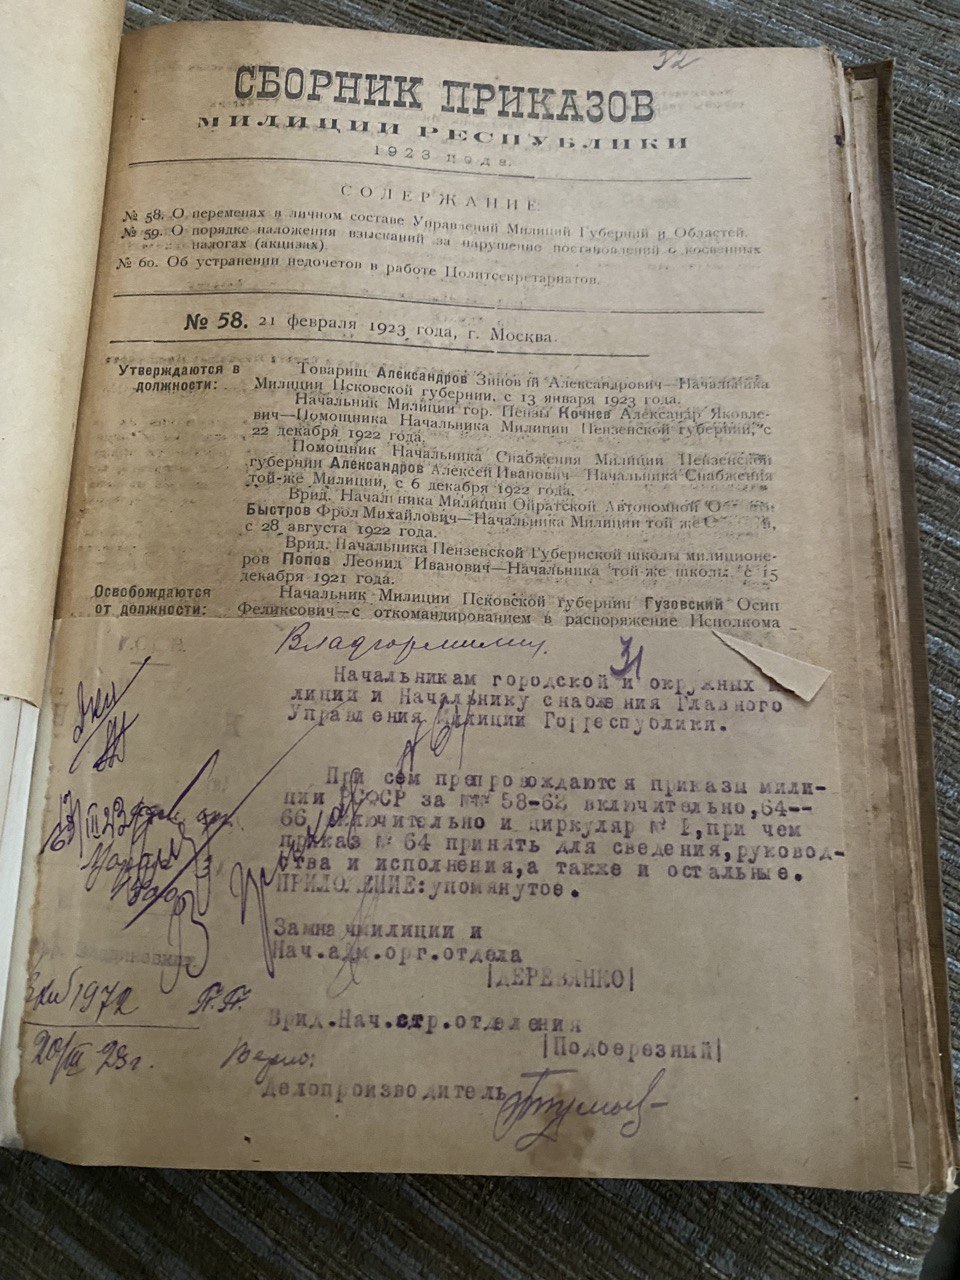 32
СБОРНИК ПРИКАЗОВ
МИЛИЦИИ РЕСПУБЛИКИ
1923 года.
СОДЕРЖАНИЕ
№ 58. О переменах в личном составе Управлений Милиций Губерний и Областей.
№ 59. О порядке наложения взысканий за нарушение постановлений о косвенных
налогах (акцизах)
№ 60. Об устранении недочетов в работе Политсекретариатов.
№ 58. 21 февраля 1923 года, г. Москва.
Утверждаются в
должности:
Товарищ Александров Зиновий Александрович—Начальника
Милиции Псковской губернии, с 13 января 1923 года.
Начальник Милиции гор. Пензы Кочнев Александр Яковле-
вич—Помощника Начальника Милиции Пензенской губернии, с
22 декабря 1922 года.
Помощник Начальника Снабжения Милиции Пензенской
губернии Александров Алексей Иванович—Начальника Снабжения
той-же Милиции, с 6 декабря 1922 года.
Врид. Начальника Милиции Ойратской Автономной
Быстров Фрол Михайлович—Начальника Милиции той же
с 28 августа 1922 года.
Врид. Начальника Пензенской Губернской школы милиционе-
ров Попов Леонид Иванович—Начальника той-же школы с 15
декабря 1921 года.
Освобождаются
от должности:
Начальник Милиции Псковской губернии Гузовский Осип
Феликсович—с откомандированием в распоряжение Исполкома
Владгормилиц.
31
Начальникам городской и окружных
лиции и Начальнику снабжения Главного
Управления Милиции Горреспублики.
При сем препровождаются приказы мили-
ции РСФСР за №№ 58-62 включительно, 64--
66, включительно и циркуляр № 1, при чем
приказ № 64 принять для сведения, руковод-
ства и исполнения, а также и остальные.
ПРИЛОЖЕНИЕ: упомянутое.
Замначмилиции и
Нач.адм.орг.отдела
|ДЕРЕВЯНКО|
Врид.Нач.стр.отделения
|Подберезный|
1972
20/III 23г.
Верно:
Делопроизводитель